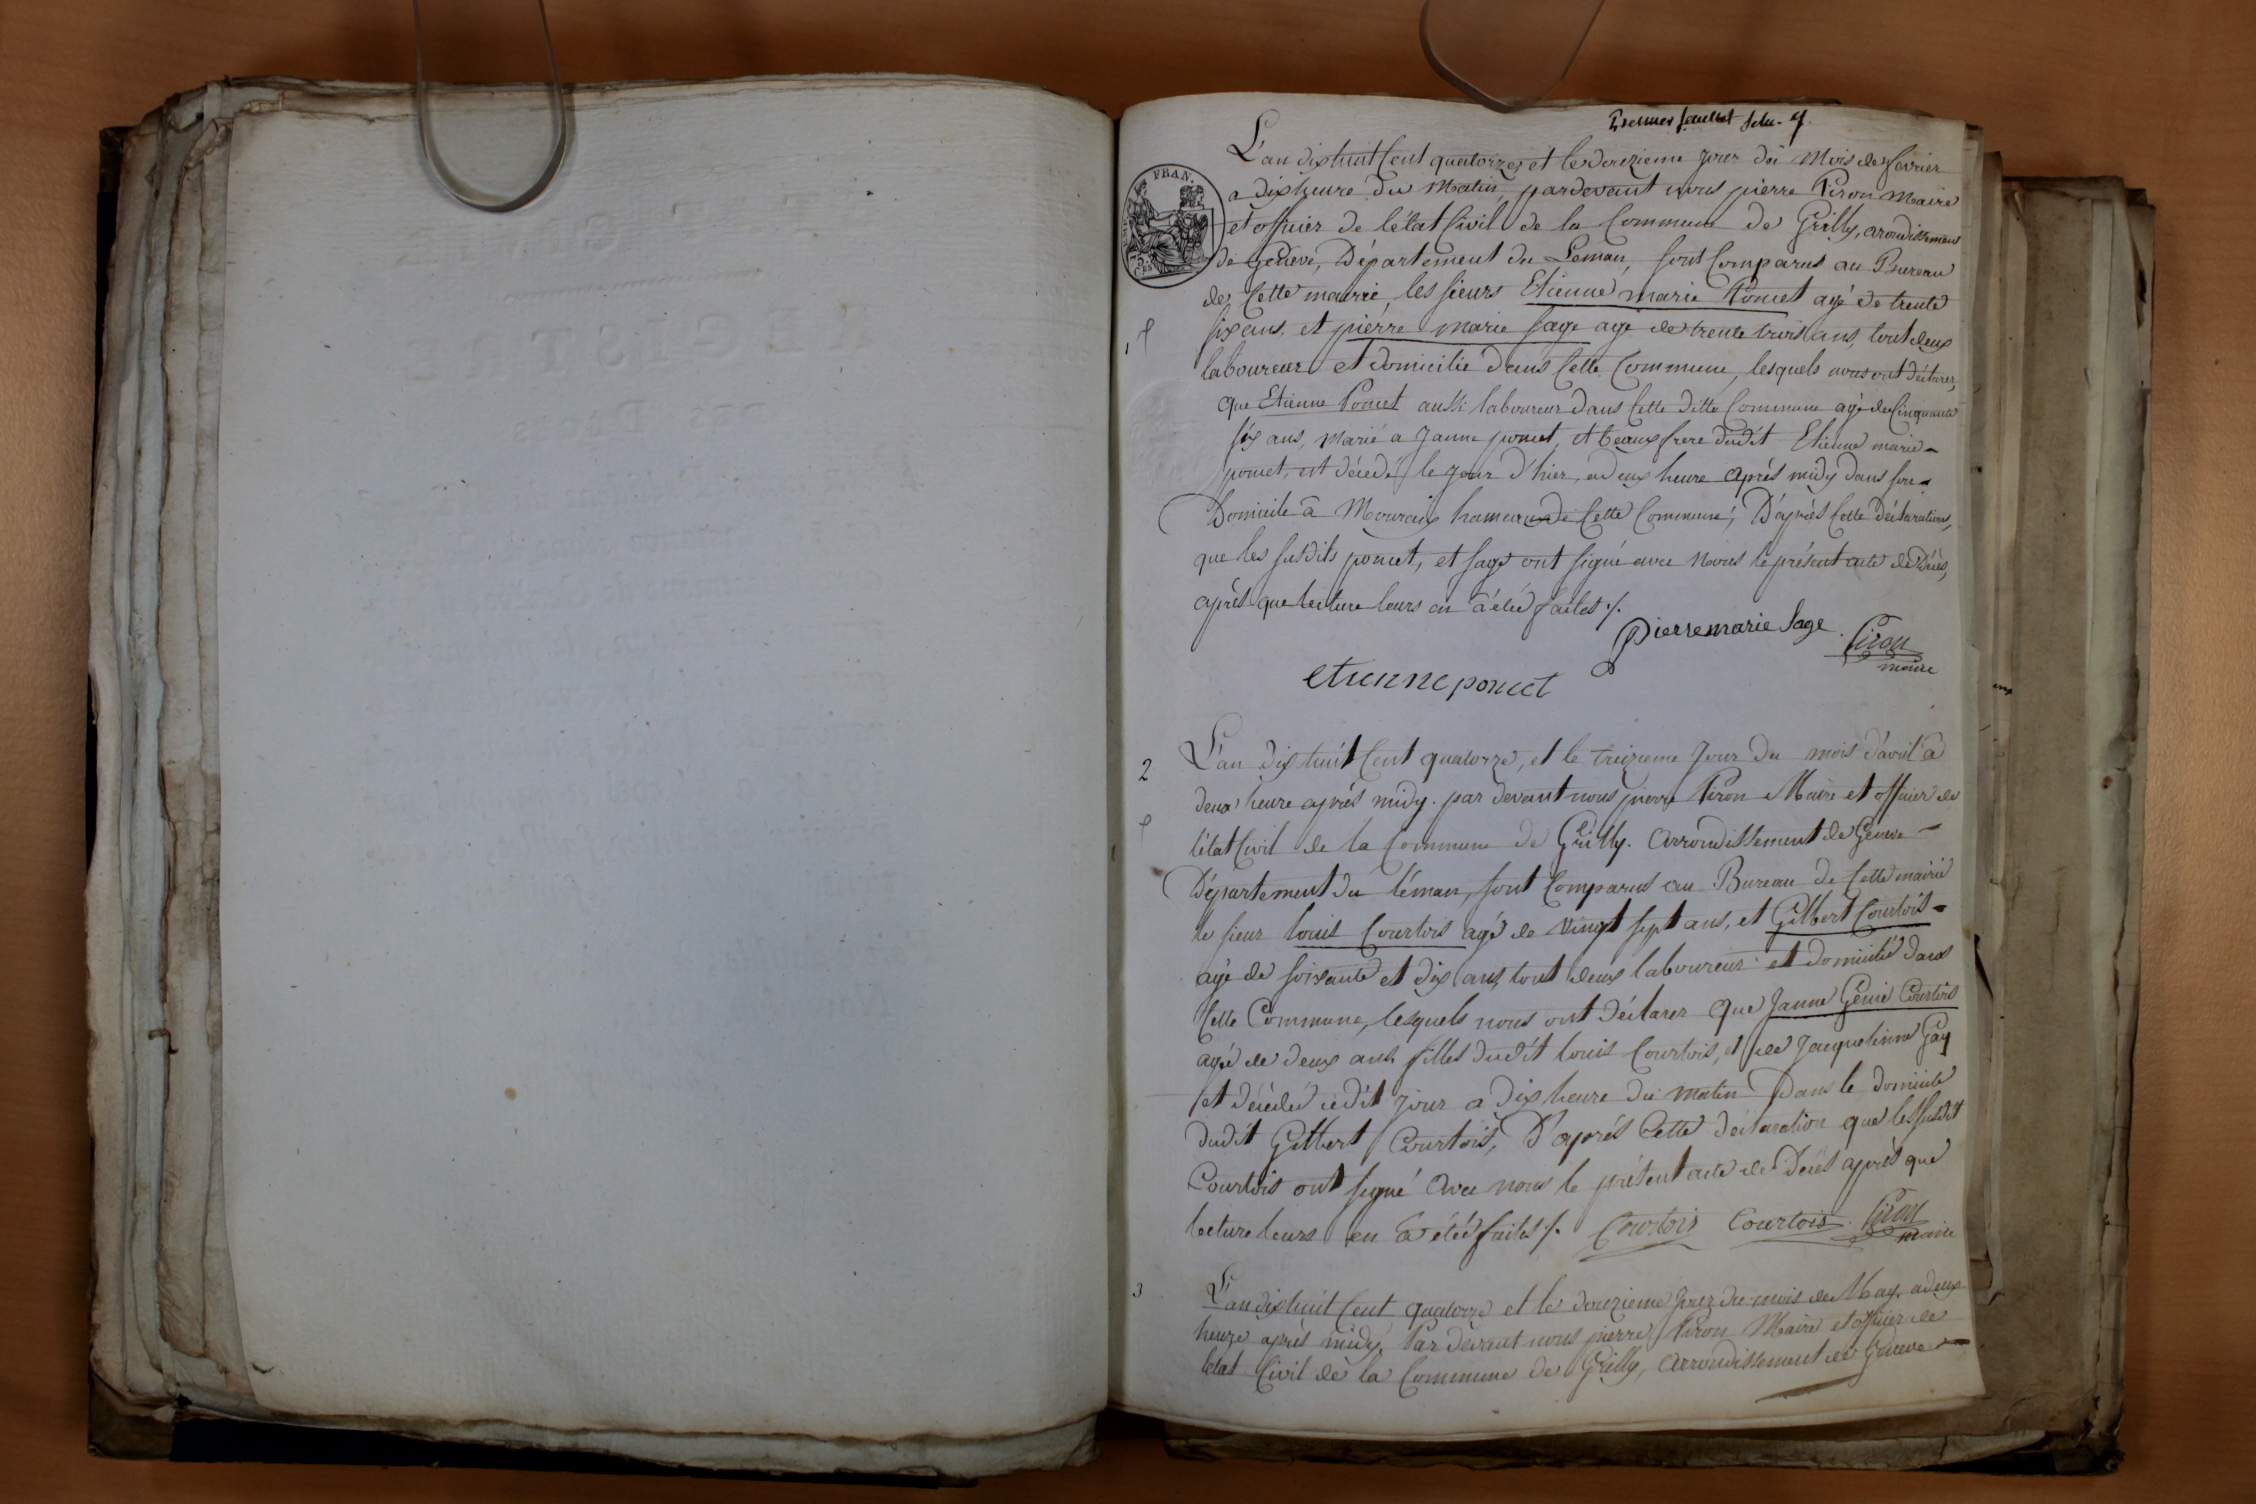 premier feuillet
L'an dix huit Cent quatorze, et le douzieme Jour du Mois de fevrier
a dix heure du Matin, pardevant nous pierre Piron Maire
et officier de l'état Civil de la Commune de Grilly, arondissement
de Geneve, Département du Leman, sont Comparus au Bureau
de Cette mairie, les sieurs Etienne marie Poncet agé de trente
six ans, et pierre marie sage agé de trente trois ans, tout deux
laboureur et domicilié dans Cette Commune, lesquels nous ont déclarer,
que Etienne Poncet aussi laboureur dans Cette ditte Commune agé de Cinquante
six ans, Marié a Janne poncet, et beaux frere dudit Etienne marie
poncet, est décedé le jour d'hier, a deux heure après midy dans son
Domicile à Mourex hameau de Cette Commune; D'après Cette déclaration,
que les susdits poncet, et sage ont signé avec Nous le présent acte de Décès,
après que lecture leurs en a été faites ./.
FRAN.
1
pierre marie Sage
Piron
maire
etienne poncet
2
L'an dix huit Cent quatorze, et le treizieme Jour du mois d'avril à
deux heure après midy. par devant nous pierre Piron Maire et officier de
l'état Civil de la Commune de Grilly. Arrondissement de Geneve
Département du Léman, sont Comparus au Bureau de Cette mairie
le sieur louis Courtois agé de Vingt sept ans, et Gilbert Courtois
agé de soixante et dix ans, tout deux laboureurs et domicilié dans
Cette Commune, lesquels nous ont déclarer que Janne Genie Courtois
agé de deux ans filles dudit louis Courtois, et de Jacquelinne Gay
et décédé cedit jour a dix heure du matin Dans le domicile
dudit Gilbert Courtois, D'après Cette déclaration que les susdit
Courtois ont signé Avec nous le présent acte de Décès après que
lecture leurs en a été faites ./. Courtois Courtois Piron
maire
3
L'an dix huit Cent quatorze et le douzieme Jour du mois de May, a deux
heure après midy, Par devant nous pierre Piron Maire et officier de
l'état Civil de la Commune de Grilly, Arrondissement de Geneve